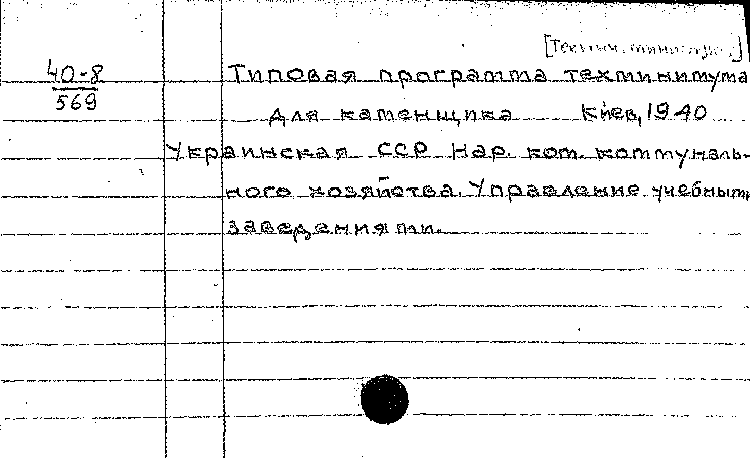 40-8
569
Типовая программа техминимума
для каменщика Киев, 1940
Украинская ССР Нар. ком. коммуналь-
ного хозяйства. Управление учебными
заведениями.